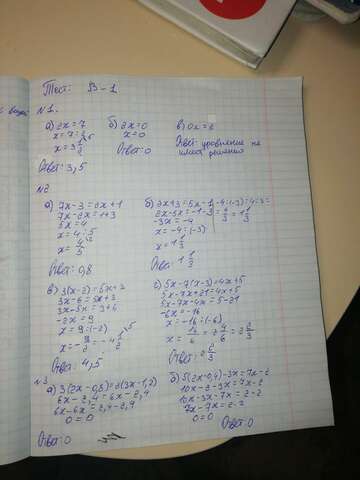 Тест: В-1
№1.
а) 2x = 7
x = 7 : 2
x = 3 1/2
Ответ: 3,5
б) 2x = 0
x = 0
Ответ: 0
в) 0x = 2
Ответ: уравнение не
имеет решения
№2
а) 7x - 3 = 2x + 1
7x - 2x = 1 + 3
5x = 4
x = 4 : 5
x = 4/5
Ответ: 0,8
б) 2x + 3 = 5x - 1
2x - 5x = -1 - 3
-3x = -4
x = -4 : (-3)
x = 1 1/3
-4 : (-3) = 4 : 3 =
= 1 1/3
Ответ: 1 1/3
в) 3(x - 2) = 5x + 3
3x - 6 = 5x + 3
3x - 5x = 3 + 6
-2x = 9
x = 9 : (-2)
Ответ: 4,5
г) 5x - 7(x - 3) = 4x + 5
5x - 7x + 21 = 4x + 5
5x - 7x - 4x = 5 - 21
-6x = -16
x = -16 : (-6)
Ответ: 2 2/3
№3
а) 3(2x - 0,8) = 2(3x - 1,2)
6x - 2,4 = 6x - 2,4
6x - 6x = 2,4 - 2,4
0 = 0
Ответ: 0
б) 5(2x - 0,4) - 3x = 7x - 2
10x - 2 - 3x = 7x - 2
10x - 3x - 7x = 2 - 2
7x - 7x = 2 - 2
0 = 0
Ответ: 0